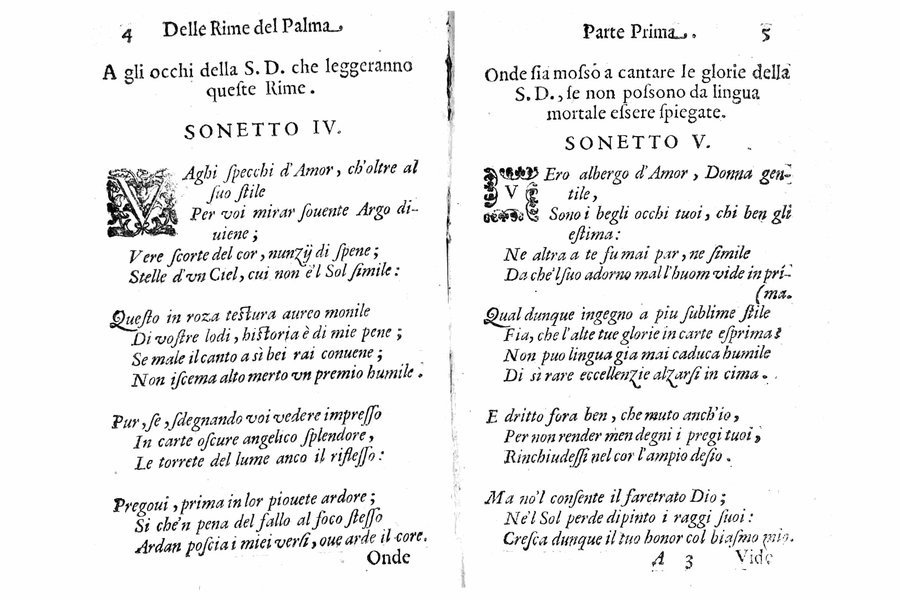 4 Delle Rime del Palma.
A gli occhi della S. D. che leggeranno
queſte Rime.
SONETTO IV.
VAghi ſpecchi d'Amor, ch'oltre al
ſuo ſtile
Per voi mirar ſouente Argo di-
uiene;
Vere ſcorte del cor, nunzÿ di ſpene;
Stelle d'vn Ciel, cui non è'l Sol ſimile:
Queſto in roza teſtura aureo monile
Di voſtre lodi, hiſtoria è di mie pene;
Se male il canto a sì bei rai conuene;
Non iſcema alto merto vn premio humile.
Pur, ſe, ſdegnando voi vedere impreſſo
In carte oſcure angelico ſplendore,
Le torrete del lume anco il rifleſſo:
Pregoui, prima in lor piouete ardore;
Si che'n pena del fallo al foco ſteſſo
Ardan poſcia i miei verſi, oue arde il core.
Onde
Parte Prima. 5
Onde ſia moſſo a cantare le glorie della
S. D., ſe non poſſono da lingua
mortale eſſere ſpiegate.
SONETTO V.
VEro albergo d'Amor, Donna gen-
tile,
Sono i begli occhi tuoi, chi ben gli
eſtima:
Ne altra a te fu mai par, ne ſimile
Da che'l ſuo adorno mal l'huom vide in pri-
(ma.
Qual dunque ingegno a piu ſublime ſtile
Fia, che l'alte tue glorie in carte eſprima?
Non puo lingua gia mai caduca humile
Di sì rare eccellenzie alzarſi in cima.
E dritto fora ben, che muto anch'io,
Per non render men degni i pregi tuoi,
Rinchiudeſſi nel cor l'ampio deſio.
Ma no'l conſente il faretrato Dio;
Ne'l Sol perde dipinto i raggi ſuoi:
Creſca dunque il tuo honor col biaſmo mio.
A 3 Vide